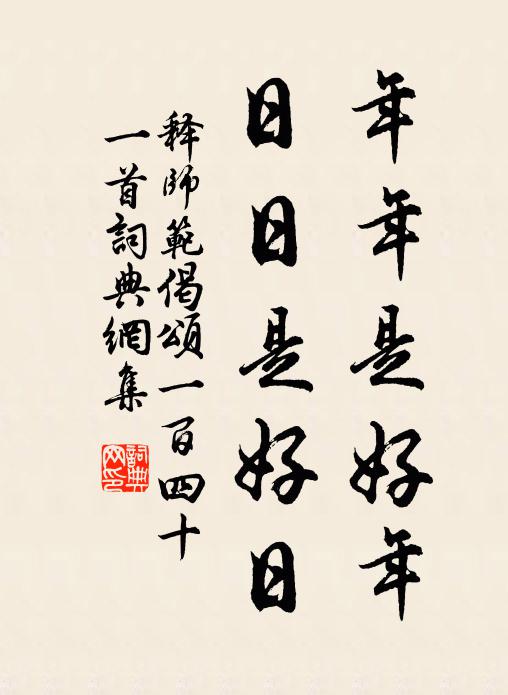 年年是好年
日日是好日
释師範偈頌一百四十
一首詞典網集
詞典网印